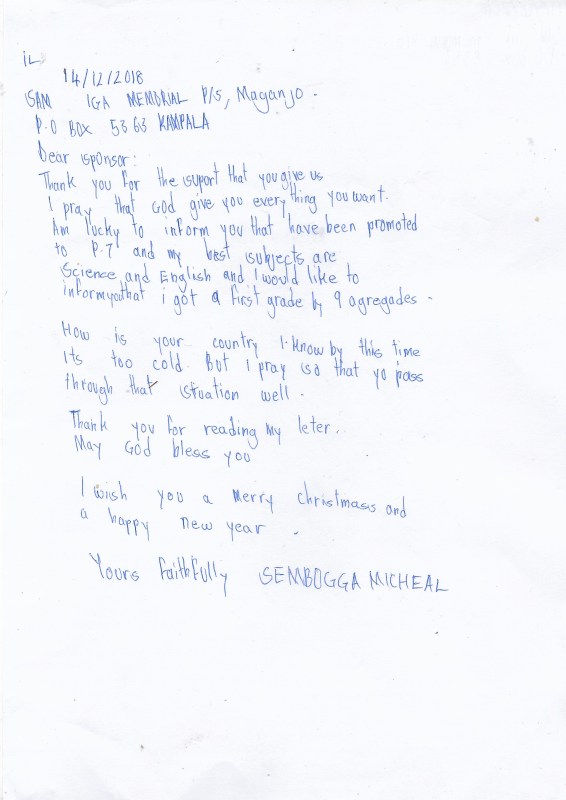 iL
14/12/2018
SAM IGA MEMORIAL P/S, Maganjo.
P.O BOX 5363 KAMPALA
Dear sponsor:
Thank you for the suport that you give us
I pray that God give you every thing you want.
Am lucky to inform you that have been promoted
to P.7 and my best subjects are
Science and English and I would like to
informyothat i got a first grade by 9 agregades.
How is your country I know by this time
Its too cold. But I pray so that yo pass
through that stuation well.
Thank you for reading my leter.
May God bless you
I wish you a merry christmass and
a happy new year.
Yours faithfully SEMBOGGA MICHEAL